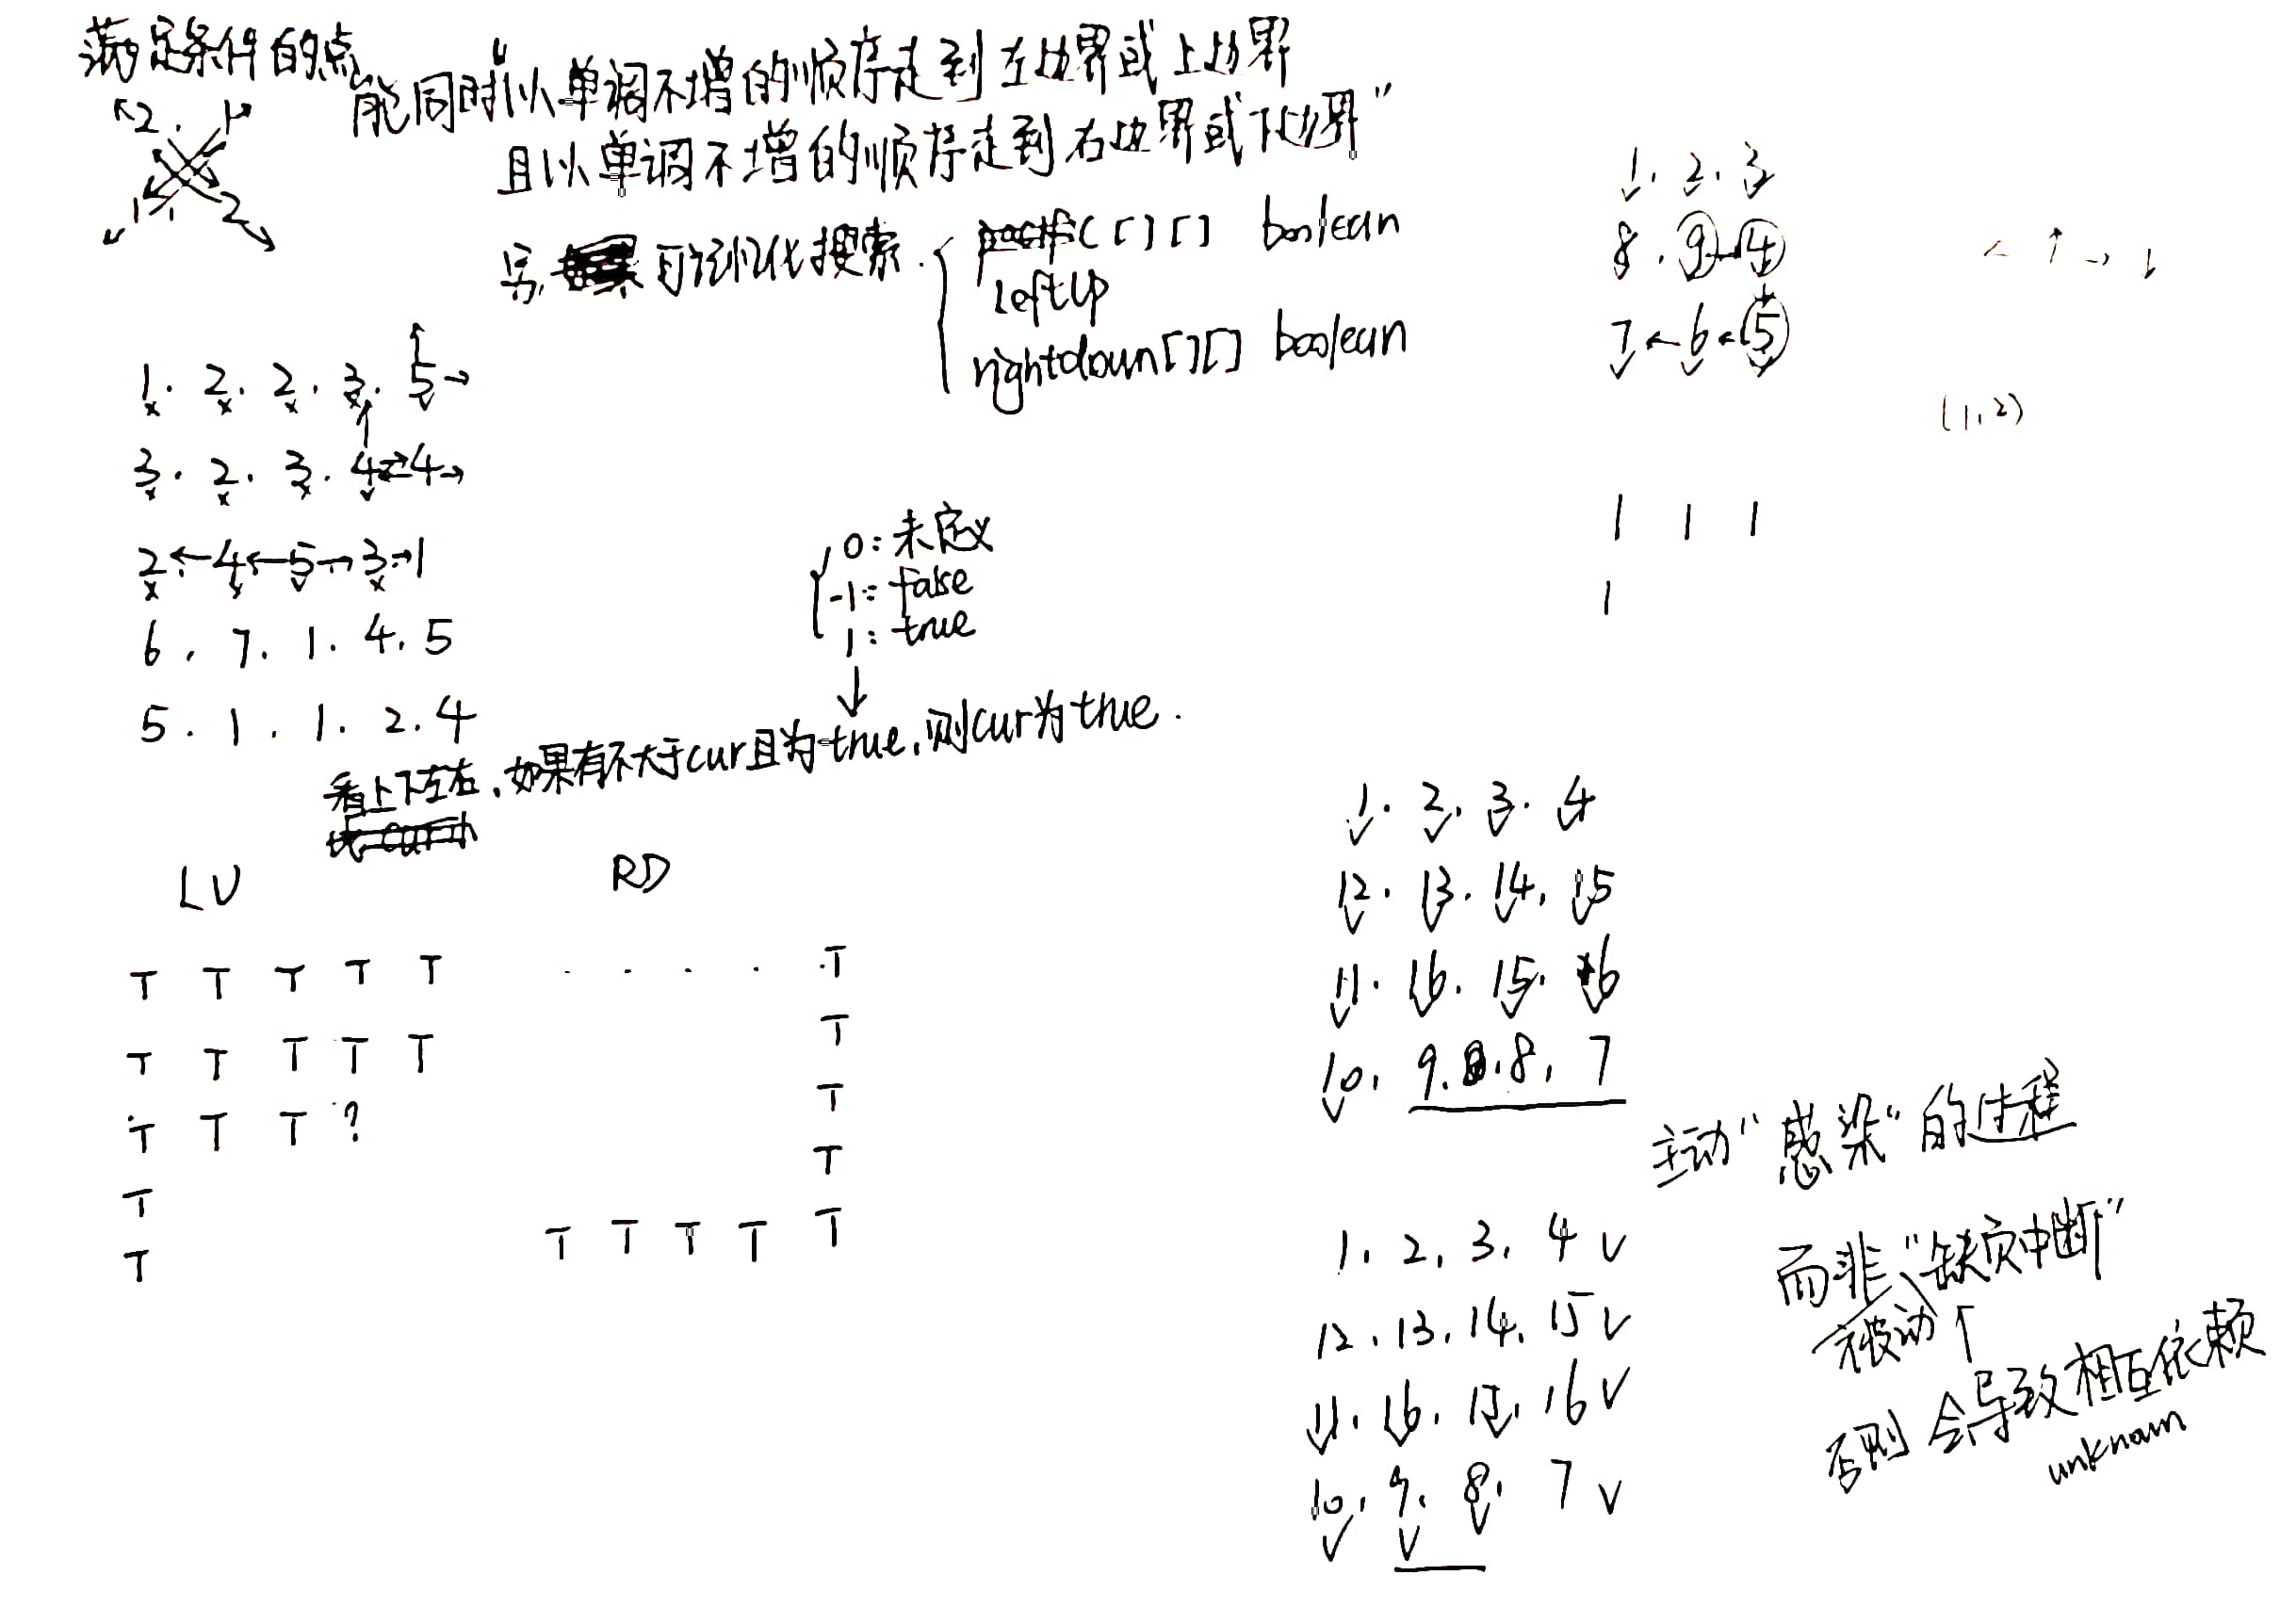 满足条件的点
能同时"以单调不增的顺序走到左边界或上边界
且以单调不增的顺序走到右边界或下边界"
另, 可记忆化搜索.
[][] boolean
leftUp
rightdown[][] boolean
1. 2. 2. 3. 5
3. 2. 3. 4 4
2 4 5 3 1
6. 7. 1. 4. 5
5. 1. 1. 2. 4
0: 未定义
-1: false
1: true
看上下左右, 如果有不大于cur且为true, 则cur为true.
LU
RD
T T T T T
T T T T T
T T T ?
T
T
. . . . T
T
T
T
T T T T T
1. 2. 3
8. 9 4
7 6 5
(1,2)
1 1 1
1
1. 2. 3. 4
12. 13. 14. 15
11. 16. 15. 16
10. 9. 8. 7
主动"感染"的过程
而非"缺页中断"
被动
否则会导致相互依赖
unknown
1. 2. 3. 4
12. 13. 14. 15
11. 16. 15. 16
10. 9. 8. 7